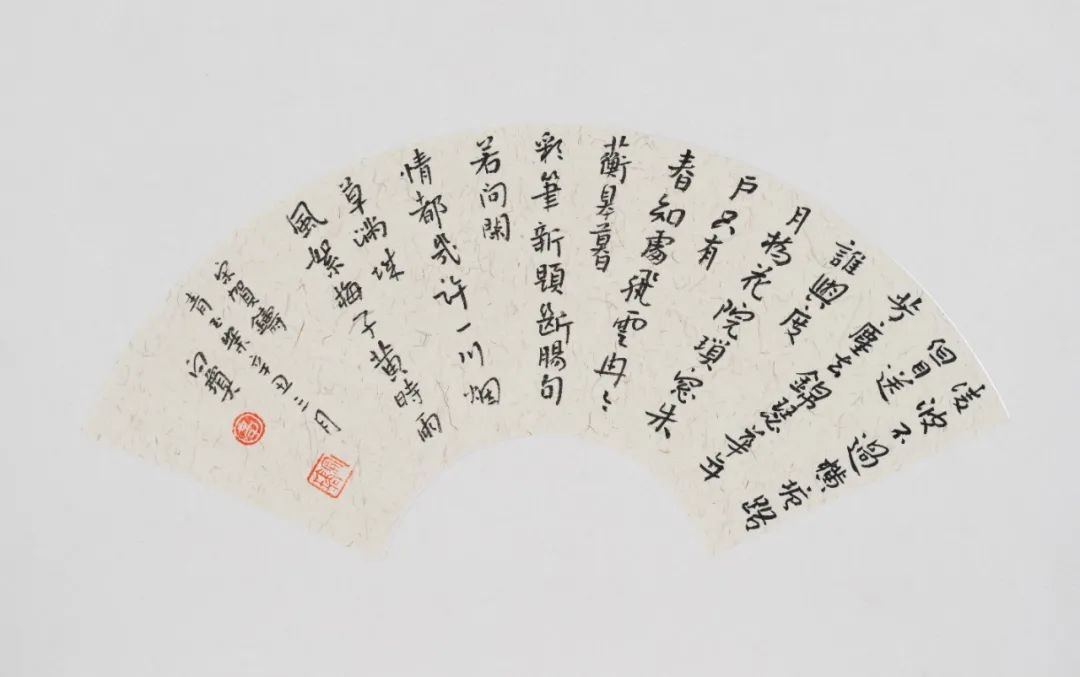 凌波不過橫塘路
但目送
芳塵去錦瑟華年
誰與度
月橋花院瑣窓朱
戶只有
春知處飛雲冉〻
蘅皋暮
彩筆新題斷腸句
若問閑
情都幾許一川烟
草滿城
風絮梅子黃時雨
宋賀鑄
青玉案辛丑三月